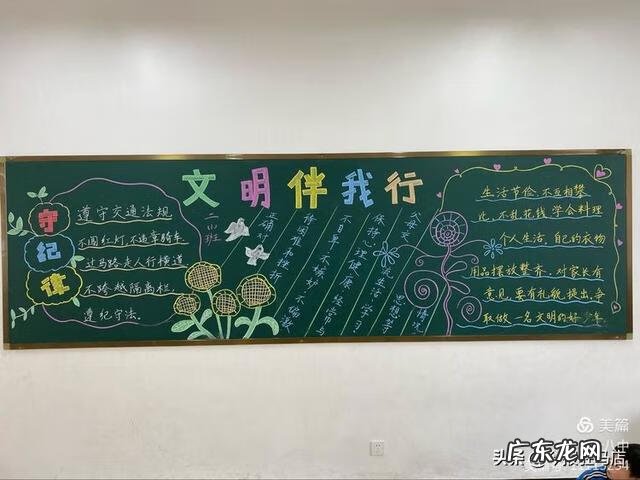 文明伴我行
二(1)班
守纪律
遵守交通法规
不闯红灯,不违章骑车
过马路走人行横道
不跨越隔离栏,
遵纪守法。
正确对
待困难和挫折
不自卑、不嫉妒、不偏激
保持心理健康
经常与
父母交
流生活、学习
思想等
情况
生活节俭,不互相攀
比,不乱花钱,学会料理
个人生活,自己的衣物
用品摆放整齐,对家长有
意见,要有礼貌提出,争
取做一名文明的好少年
美篇
广东龙网